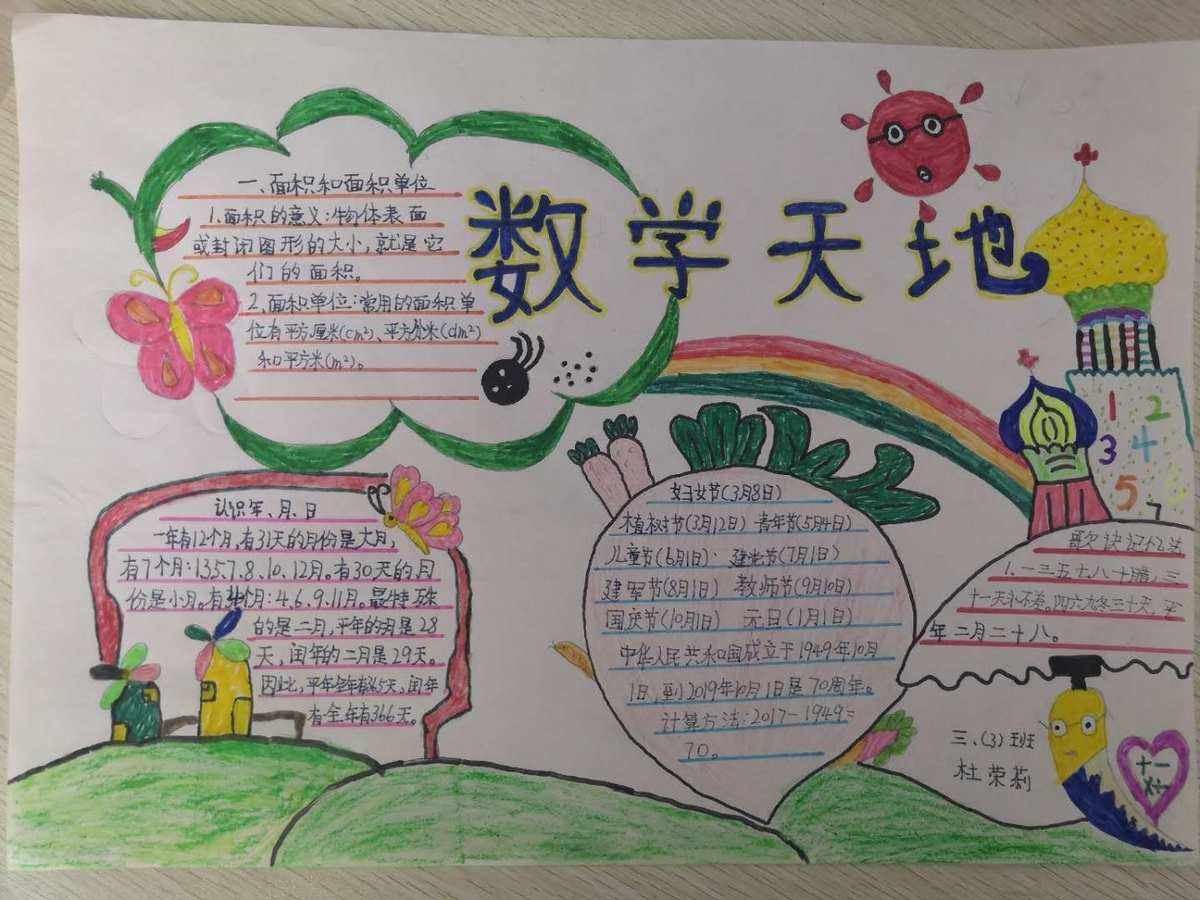 数学天地
一、面积和面积单位
1.面积的意义:物体表面
或封闭图形的大小,就是它
们的面积。
2.面积单位:常用的面积单
位有平方厘米(cm²)、平方分米(dm²)
和平方米(m²)。
认识年、月、日
一年有12个月,有31天的月份是大月,
有7个月:1 3 5.7.8、10、12月。有30天的月
份是小月。有4个月:4.6.9.11月。最特殊
的是二月,平年的二月是28
天,闰年的二月是29天。
因此,平年全年有365天、闰年
有全年有366天。
妇女节(3月8日)
植树节(3月12日) 青年节(5月4日)
儿童节(6月1日) 建党节(7月1日)
建军节(8月1日) 教师节(9月10日)
国庆节(10月1日) 元旦(1月1日)
中华人民共和国成立于1949年10月
1日,到2019年10月1日是70周年。
计算方法:2017-1949=
70。
1 2
3 4
5 6
7
歌诀记忆法
1.一三五七八十腊,三
十一天永不差。四六九冬三十天,平
年二月二十八。
三、(3)班
杜荣莉
+ -
× ÷